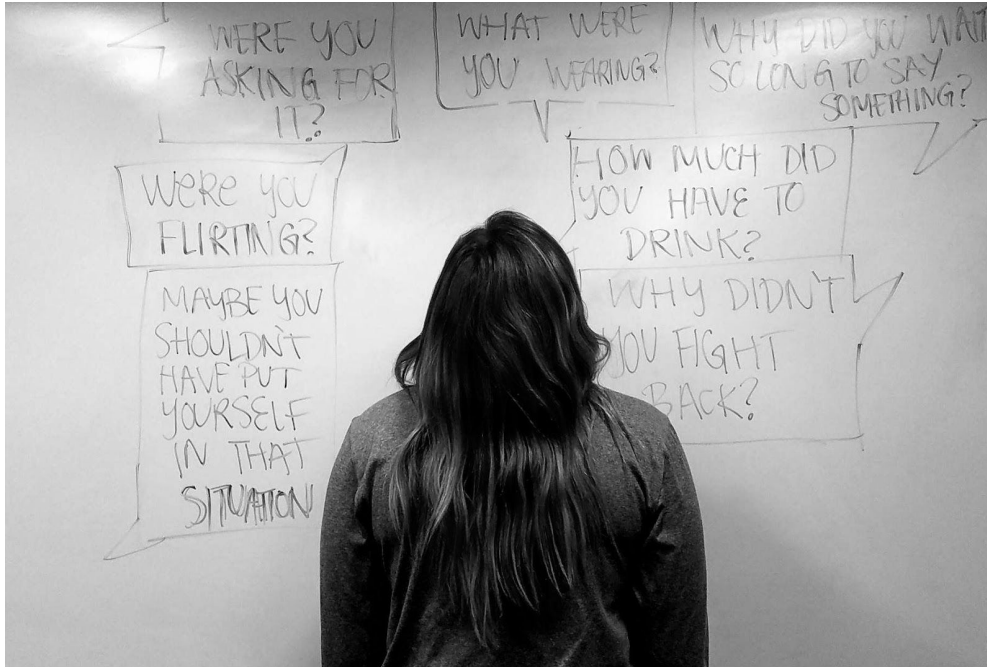 WERE YOU
ASKING FOR
IT?
WHAT WERE
YOU WEARING?
WHY DID YOU WAIT
SO LONG TO SAY
SOMETHING?
WERE YOU
FLIRTING?
HOW MUCH DID
YOU HAVE TO
DRINK?
MAYBE YOU
SHOULDN'T
HAVE PUT
YOURSELF
IN THAT
SITUATION
WHY DIDN'T
YOU FIGHT
BACK?